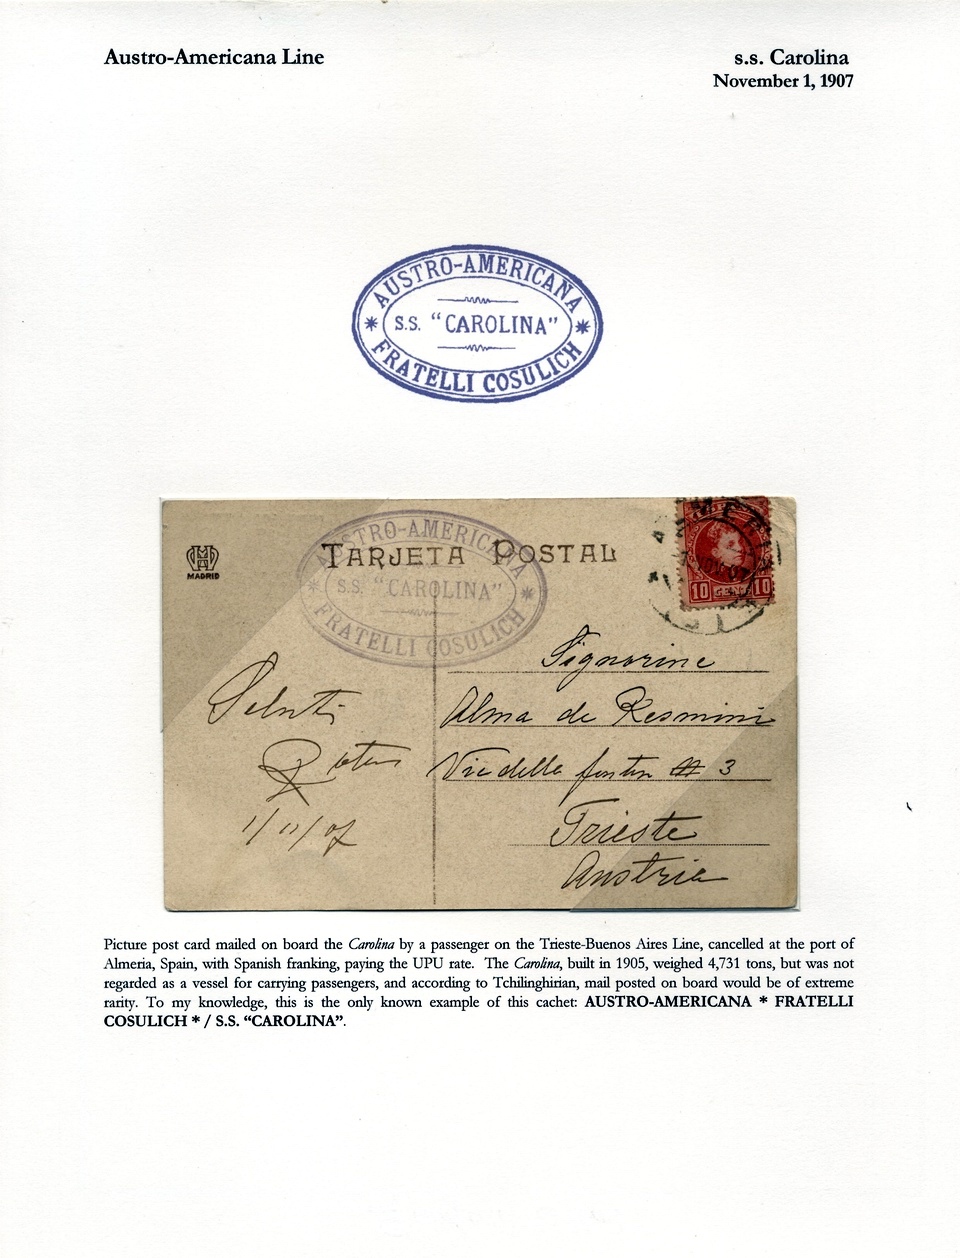 Austro-Americana Line
s.s. Carolina
November 1, 1907
AUSTRO-AMERICANA
S.S. "CAROLINA"
FRATELLI COSULICH
AUSTRO-AMERICANA
TARJETA POSTAL
MADRID
S.S. "CAROLINA"
FRATELLI COSULICH
10 CENTS 10
Signorine
Saluti
Alma de Resmini
Via della 3
1/11/07
Trieste
Austria
Picture post card mailed on board the Carolina by a passenger on the Trieste-Buenos Aires Line, cancelled at the port of
Almeria, Spain, with Spanish franking, paying the UPU rate. The Carolina, built in 1905, weighed 4,731 tons, but was not
regarded as a vessel for carrying passengers, and according to Tchilinghirian, mail posted on board would be of extreme
rarity. To my knowledge, this is the only known example of this cachet: AUSTRO-AMERICANA * FRATELLI
COSULICH * / S.S. “CAROLINA”.